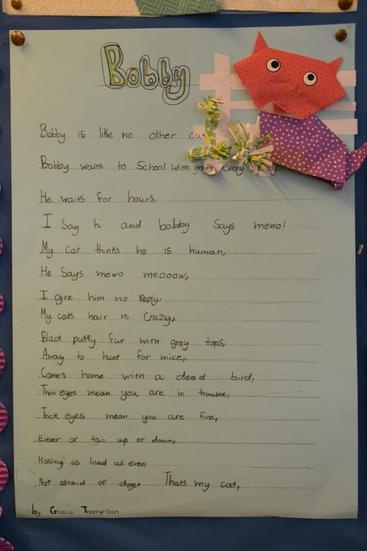 Bobby
Bobby is like no other ca
Bobby waits to School with my every
He waits for hours,
I Say hi and bobby Says mewo!
My cat thinks he is human,
He Says mewo meooow,
I give him no reply.
My cats hair is Crazy,
Black puffy fur with grey tops,
Away to hunt for mice,
Comes home with a dead bird,
Thin eyes mean you are in trouble,
Thick eyes mean you are fine,
Either or tail up or down,
Hissing as loud as ever
Not afraid of dogs. Thats my cat,
by Gracie Thompson